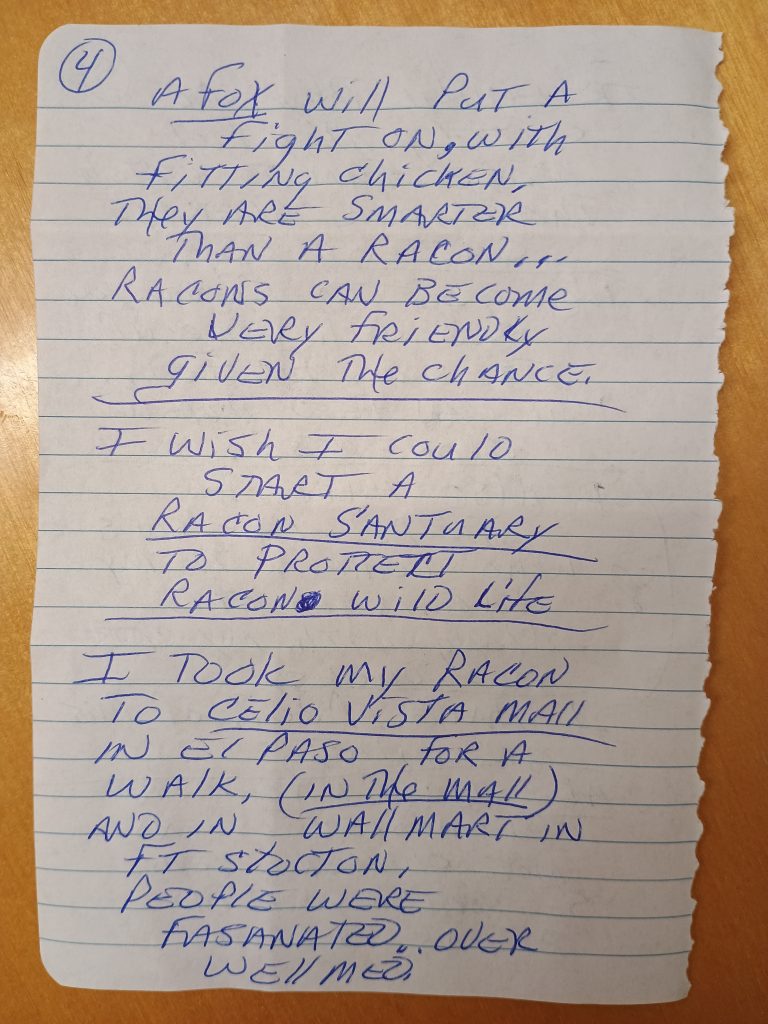 4
A FOX WILL PUT A
FIGHT ON, WITH
FITTING CHICKEN,
THEY ARE SMARTER
THAN A RACON...
RACONS CAN BECOME
VERY FRIENDLY
GIVEN THE CHANCE.
I WISH I COULD
START A
RACON SANTUARY
TO PROTECT
RACON WILD LIFE
I TOOK MY RACON
TO CELIO VISTA MALL
IN EL PASO FOR A
WALK, (IN THE MALL)
AND IN WALLMART IN
FT STOCTON,
PEOPLE WERE
FASANATED.. OVER
WELLMED.